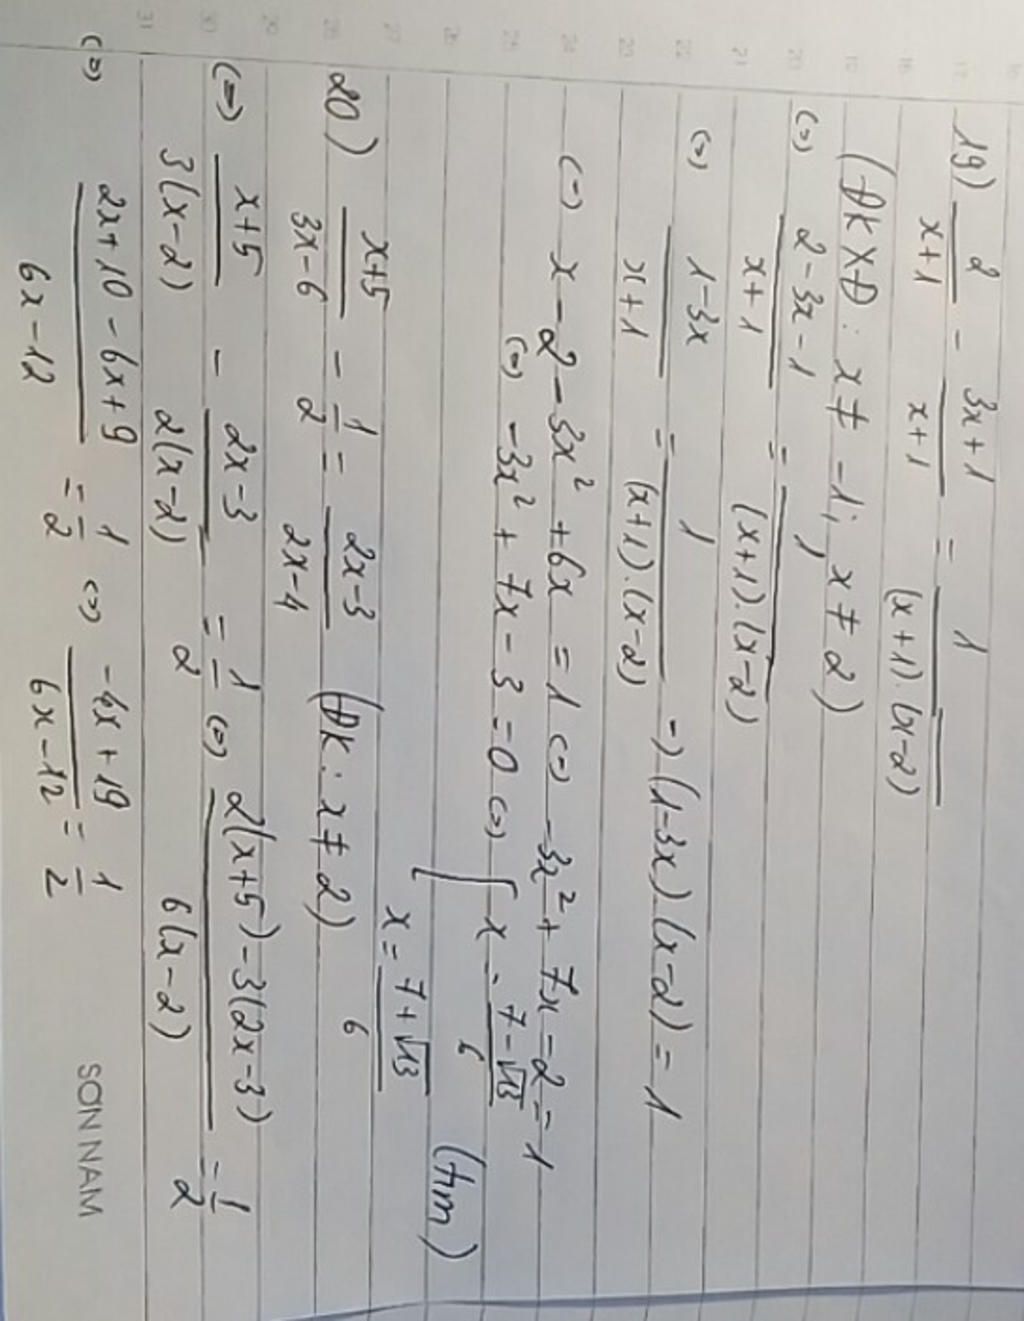 19) 2/(x+1) - (3x+1)/(x+1) = 1/((x+1).(x-2))
(ĐKXĐ: x ≠ -1; x ≠ 2)
(=) (2-3x-1)/(x+1) = 1/((x+1).(x-2))
(=) (1-3x)/(x+1) = 1/((x+1).(x-2)) -) (1-3x).(x-2) = 1
(=) x - 2 - 3x² + 6x = 1 (=) -3x² + 7x - 2 = 1
(=) -3x² + 7x - 3 = 0 (=) [ x = (7-√13)/6
x = (7+√13)/6 (tm)
20) (x+5)/(3x-6) - 1/2 = (2x-3)/(2x-4) (ĐK: x ≠ 2)
(=) (x+5)/(3(x-2)) - (2x-3)/(2(x-2)) = 1/2 (=) (2(x+5)-3(2x-3))/(6(x-2)) = 1/2
(=) (2x+10-6x+9)/(6x-12) = 1/2 (=) (-4x+19)/(6x-12) = 1/2
SƠN NAM